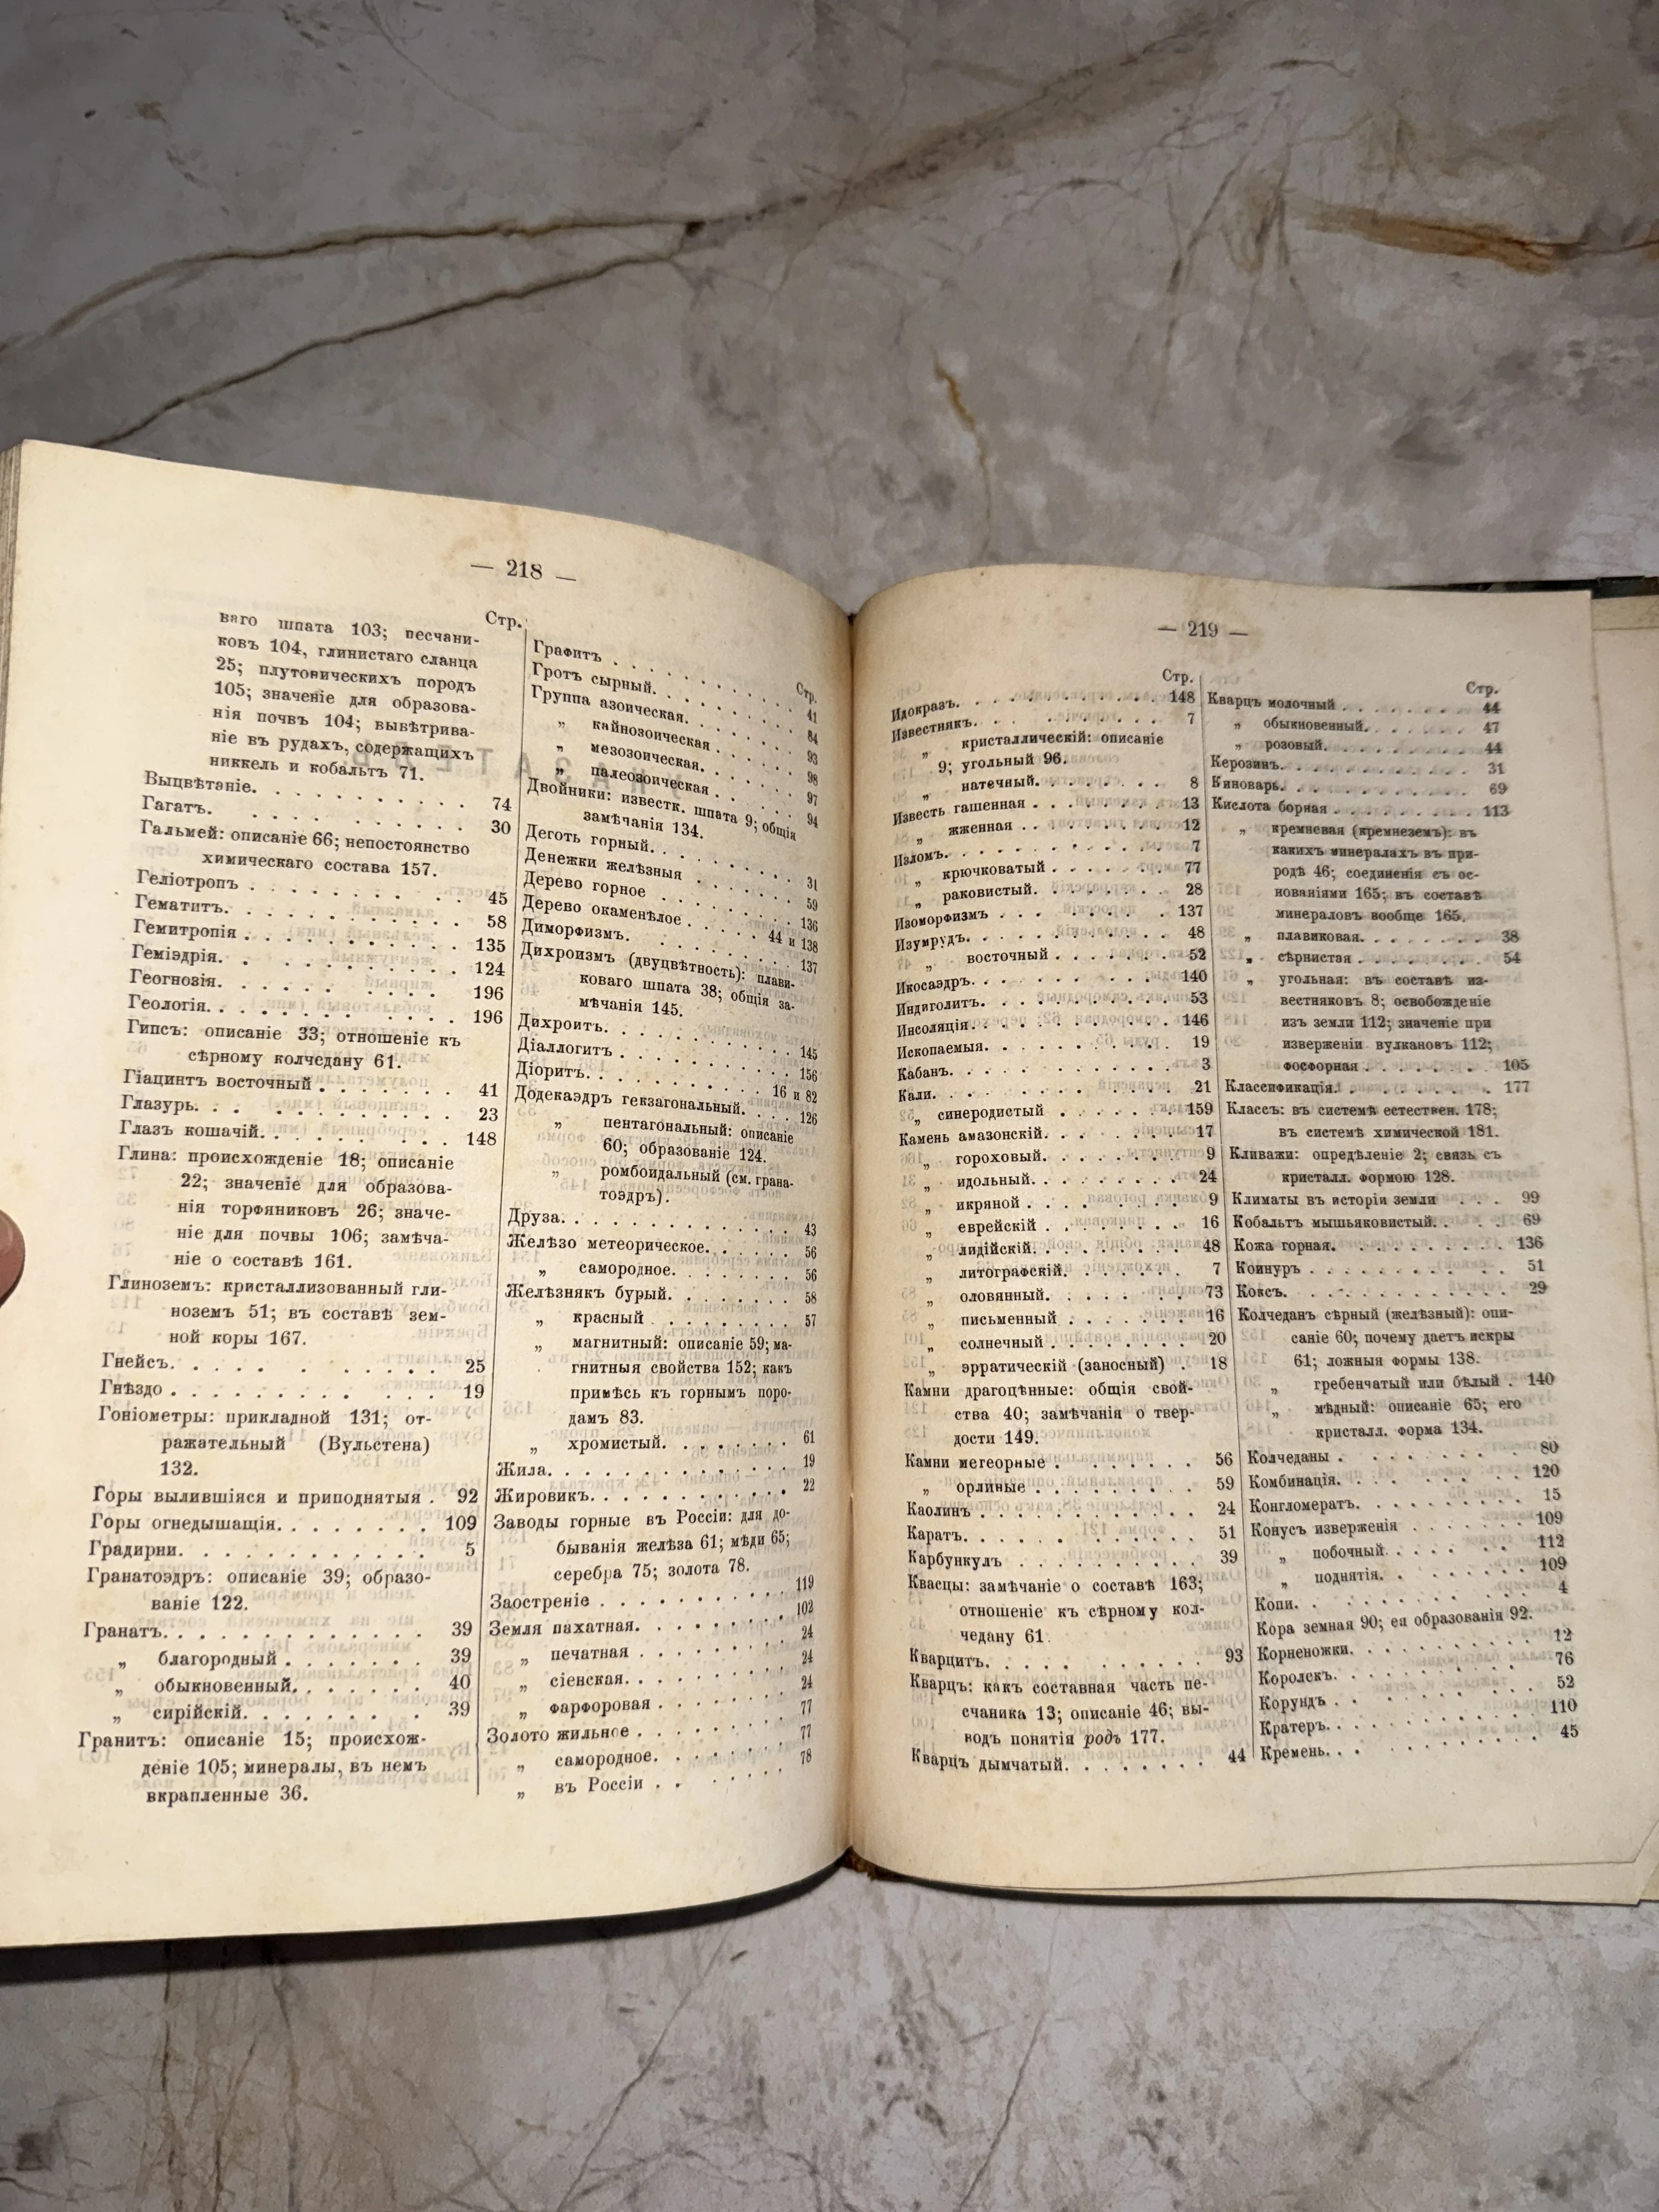 — 218 —
Стр.
ваго шпата 103; песчани-
ковъ 104, глинистаго сланца
25; плутоническихъ породъ
105; значеніе для образова-
нія почвъ 104; вывѣтрива-
ніе въ рудахъ, содержащихъ
никкель и кобальтъ 71.
Выцвѣтаніе. . . . . . . . . . 74
Гагатъ. . . . . . . . . . 30
Гальмей: описаніе 66; непостоянство
химическаго состава 157.
Геліотропъ . . . . . . . . . 45
Гематитъ. . . . . . . . . . 58
Гемитропія . . . . . . . . . . 135
Геміэдрія. . . . . . . . . . 124
Геогнозія. . . . . . . . . . 196
Геологія. . . . . . . . . . 196
Гипсъ: описаніе 33; отношеніе къ
сѣрному колчедану 61.
Гіацинтъ восточный . . . . . . 41
Глазурь. . . . . . . . . . 23
Глазъ кошачій. . . . . . . . . 148
Глина: происхожденіе 18; описаніе
22; значеніе для образова-
нія торфяниковъ 26; значе-
ніе для почвы 106; замѣча-
ніе о составѣ 161.
Глиноземъ: кристаллизованный гли-
ноземъ 51; въ составѣ зем-
ной коры 167.
Гнейсъ. . . . . . . . . . 25
Гнѣздо . . . . . . . . . . 19
Гоніометры: прикладной 131; от-
ражательный (Вульстена)
132.
Горы вылившіяся и приподнятыя . 92
Горы огнедышащія. . . . . . . 109
Градирни. . . . . . . . . . 5
Гранатоэдръ: описаніе 39; образо-
ваніе 122.
Гранатъ. . . . . . . . . . . . 39
„ благородный . . . . . . . 39
„ обыкновенный. . . . . . . 40
„ сирійскій. . . . . . . . 39
Гранитъ: описаніе 15; происхож-
деніе 105; минералы, въ немъ
вкрапленные 36.
Стр.
Графитъ . . . . . . . . . . 41
Гротъ сырный. . . . . . . . . 84
Группа азоическая. . . . . . . 93
„ кайнозоическая . . . . . . 98
„ мезозоическая. . . . . . . 97
„ палеозоическая . . . . . . 94
Двойники: известк. шпата 9; общія
замѣчанія 134.
Деготь горный. . . . . . . . . 31
Денежки желѣзныя . . . . . . . 59
Дерево горное . . . . . . . . . 136
Дерево окаменѣлое . . . . . 44 и 138
Диморфизмъ. . . . . . . . . . 137
Дихроизмъ (двуцвѣтность): плави-
коваго шпата 38; общія за-
мѣчанія 145.
Дихроитъ. . . . . . . . . . 145
Діаллогитъ . . . . . . . . . . 156
Діоритъ. . . . . . . . . . 16 и 82
Додекаэдръ гекзагональный. . . . 126
„ пентагональный: описаніе
60; образованіе 124.
„ ромбоидальный (см. грана-
тоэдръ).
Друза. . . . . . . . . . . . 43
Желѣзо метеорическое. . . . . . 56
„ самородное. . . . . . . . 56
Желѣзнякъ бурый. . . . . . . . 58
„ красный . . . . . . . . . 57
„ магнитный: описаніе 59; ма-
гнитныя свойства 152; какъ
примѣсь къ горнымъ поро-
дамъ 83.
„ хромистый. . . . . . . . 61
Жила. . . . . . . . . . . . 19
Жировикъ. . . . . . . . . . . 22
Заводы горные въ Россіи: для до-
быванія желѣза 61; мѣди 65;
серебра 75; золота 78.
Заостреніе . . . . . . . . . . 119
Земля пахатная. . . . . . . . . 102
„ печатная . . . . . . . . . 24
„ сіенская. . . . . . . . . 24
„ фарфоровая . . . . . . . . 24
Золото жильное . . . . . . . . 77
„ самородное. . . . . . . . 77
„ въ Россіи . . . . . . . 78
— 219 —
Стр.
Идокразъ. . . . . . . . . . . 148
Известнякъ. . . . . . . . . . 7
„ кристаллическій: описаніе
9; угольный 96.
„ натечный. . . . . . . . . 8
Известь гашенная . . . . . . . 13
„ жженная . . . . . . . . . 12
Изломъ. . . . . . . . . . . . 7
„ крючковатый . . . . . . . 77
„ раковистый. . . . . . . . 28
Изоморфизмъ . . . . . . . . . 137
Изумрудъ. . . . . . . . . . . 48
„ восточный . . . . . . . . 52
Икосаэдръ. . . . . . . . . . 140
Индиголитъ. . . . . . . . . . 53
Инсоляція. . . . . . . . . . 146
Ископаемыя. . . . . . . . . . 19
Кабанъ. . . . . . . . . . . . 3
Кали. . . . . . . . . . . . 21
„ синеродистый . . . . . . 159
Камень амазонскій. . . . . . . 17
„ гороховый. . . . . . . . . 9
„ идольный. . . . . . . . . 24
„ икряной . . . . . . . . . 9
„ еврейскій . . . . . . . . 16
„ лидійскій. . . . . . . . . 48
„ литографскій. . . . . . . 7
„ оловянный. . . . . . . . 73
„ письменный . . . . . . . 16
„ солнечный . . . . . . . . 20
„ эрратическій (заносный) . 18
Камни драгоцѣнные: общія свой-
ства 40; замѣчанія о твер-
дости 149.
Камни метеорные . . . . . . . 56
„ орлиные . . . . . . . . . 59
Каолинъ . . . . . . . . . . . 24
Каратъ. . . . . . . . . . . . 51
Карбункулъ . . . . . . . . . 39
Квасцы: замѣчаніе о составѣ 163;
отношеніе къ сѣрному кол-
чедану 61.
Кварцитъ. . . . . . . . . . . 93
Кварцъ: какъ составная часть пе-
счаника 13; описаніе 46; вы-
водъ понятія родъ 177.
Кварцъ дымчатый. . . . . . . . 44
Стр.
Кварцъ молочный . . . . . . . 44
„ обыкновенный. . . . . . . 47
„ розовый. . . . . . . . . 44
Керозинъ. . . . . . . . . . . 31
Киноварь. . . . . . . . . . . 69
Кислота борная . . . . . . . . 113
„ кремневая (кремнеземъ): въ
какихъ минералахъ въ при-
родѣ 46; соединенія съ ос-
нованіями 165; въ составѣ
минераловъ вообще 165.
„ плавиковая. . . . . . . . 38
„ сѣрнистая . . . . . . . . 54
„ угольная: въ составѣ из-
вестняковъ 8; освобожденіе
изъ земли 112; значеніе при
изверженіи вулкановъ 112;
фосфорная . . . . . . . 105
Классификація. . . . . . . . . 177
Классъ: въ системѣ естествен. 178;
въ системѣ химической 181.
Кливажи: опредѣленіе 2; связь съ
кристалл. формою 128.
Климаты въ исторіи земли . . . 99
Кобальтъ мышьяковистый. . . . . 69
Кожа горная. . . . . . . . . . 136
Коинуръ . . . . . . . . . . . 51
Коксъ. . . . . . . . . . . . 29
Колчеданъ сѣрный (желѣзный): опи-
саніе 60; почему даетъ искры
61; ложныя формы 138.
„ гребенчатый или бѣлый . 140
„ мѣдный: описаніе 65; его
кристалл. форма 134.
Колчеданы . . . . . . . . . . 80
Комбинація. . . . . . . . . . 120
Конгломератъ. . . . . . . . . 15
Конусъ изверженія . . . . . . . 109
„ побочный . . . . . . . . 112
„ поднятія. . . . . . . . . 109
Копи. . . . . . . . . . . . 4
Кора земная 90; ея образованія 92.
Корненожки. . . . . . . . . . 12
Королекъ. . . . . . . . . . . 76
Корундъ . . . . . . . . . . . 52
Кратеръ. . . . . . . . . . . 110
Кремень. . . . . . . . . . . 45